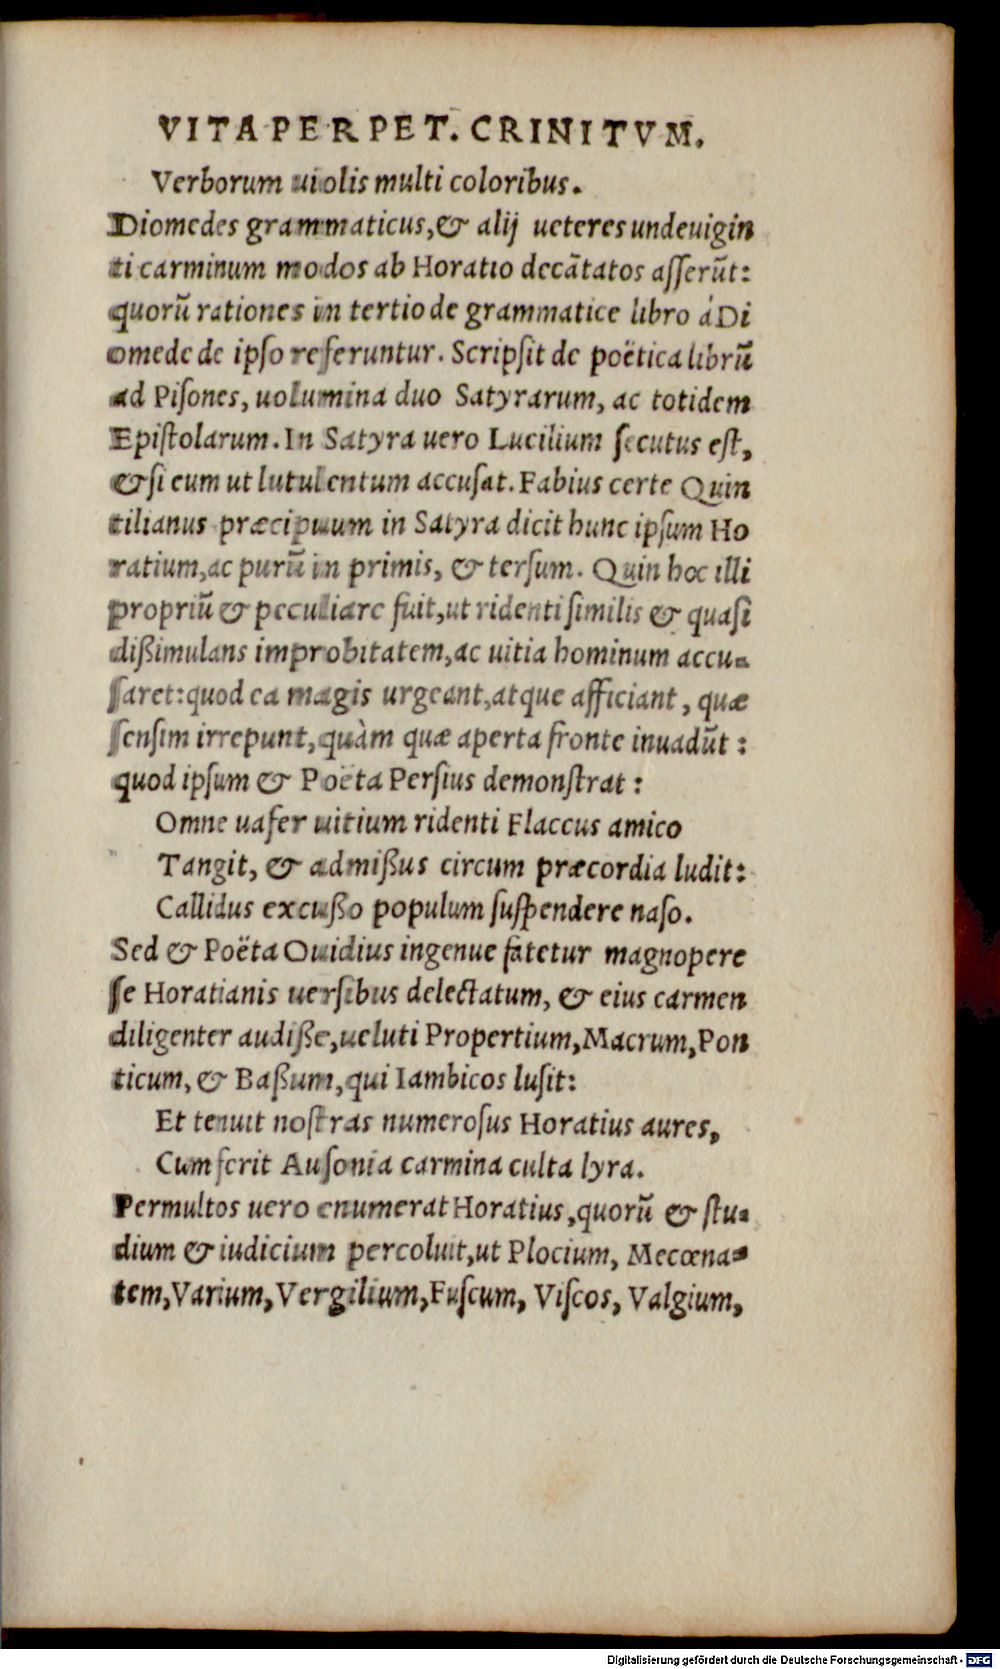 VITA PER PET. CRINITVM.
Verborum uiolis multi coloribus.
Diomedes grammaticus, & alij ueteres undeuigin
ti carminum modos ab Horatio decãtatos asserũt:
quorũ rationes in tertio de grammatice libro à Di
omede de ipso referuntur. Scripsit de poëtica librũ
ad Pisones, uolumina duo Satyrarum, ac totidem
Epistolarum. In Satyra uero Lucilium secutus est,
& si eum ut lutulentum accusat. Fabius certe Quin
tilianus præcipuum in Satyra dicit hunc ipsum Ho
ratium, ac purũ in primis, & tersum. Quin hoc illi
propriũ & peculiare fuit, ut ridenti similis & quasi
dißimulans improbitatem, ac uitia hominum accu-
saret: quod ea magis urgeant, atque afficiant, quæ
sensim irrepunt, quàm quæ aperta fronte inuadũt:
quod ipsum & Poëta Persius demonstrat:
Omne uafer uitium ridenti Flaccus amico
Tangit, & admißus circum præcordia ludit:
Callidus excußo populum suspendere naso.
Sed & Poëta Ouidius ingenue fatetur magnopere
se Horatianis uersibus delectatum, & eius carmen
diligenter audiße, ueluti Propertium, Macrum, Pon
ticum, & Baßum, qui Iambicos lusit:
Et tenuit nostras numerosus Horatius aures,
Cum ferit Ausonia carmina culta lyra.
Permultos uero enumerat Horatius, quorũ & stu-
dium & iudicium percoluit, ut Plocium, Mecœna-
tem, Varium, Vergilium, Fuscum, Viscos, Valgium,
Digitalisierung gefördert durch die Deutsche Forschungsgemeinschaft - DFG